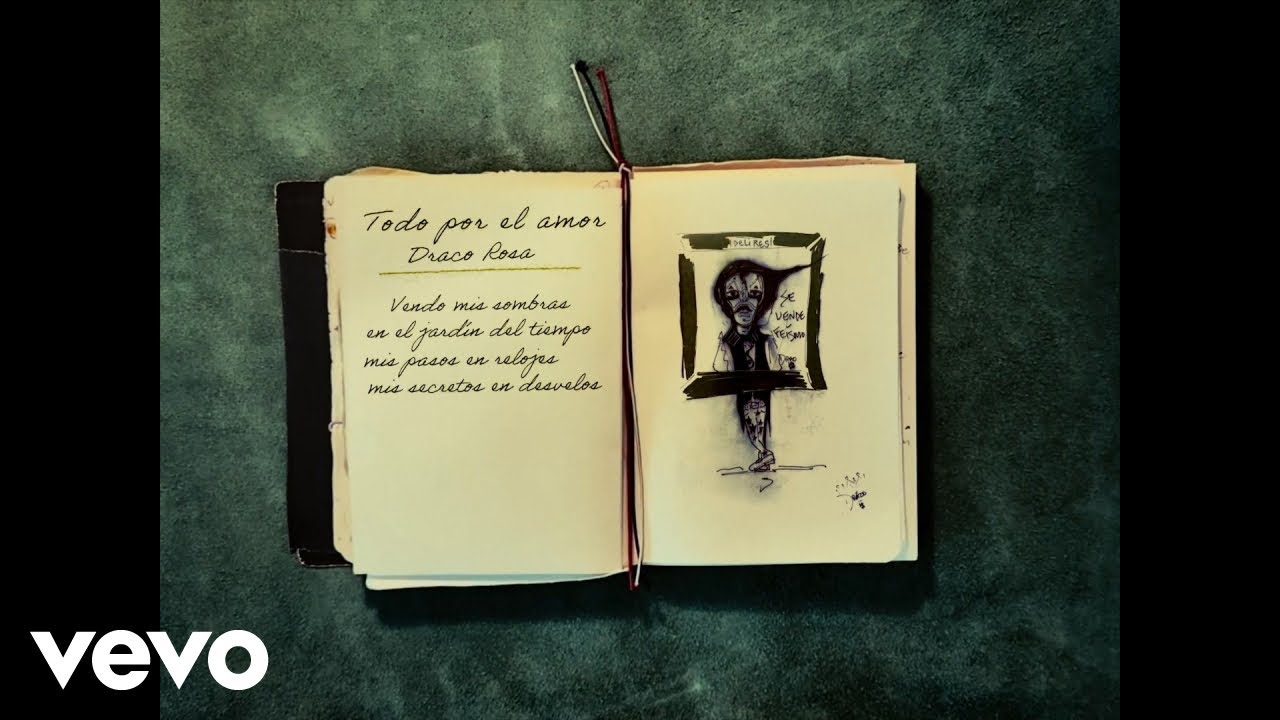 Todo por el amor
Draco Rosa
Vendo mis sombras
en el jardín del tiempo
mis pasos en relojes
mis secretos en desvelos
¡DELIRES!
SE
VENDE
FEÍSMO
Draco
vevo